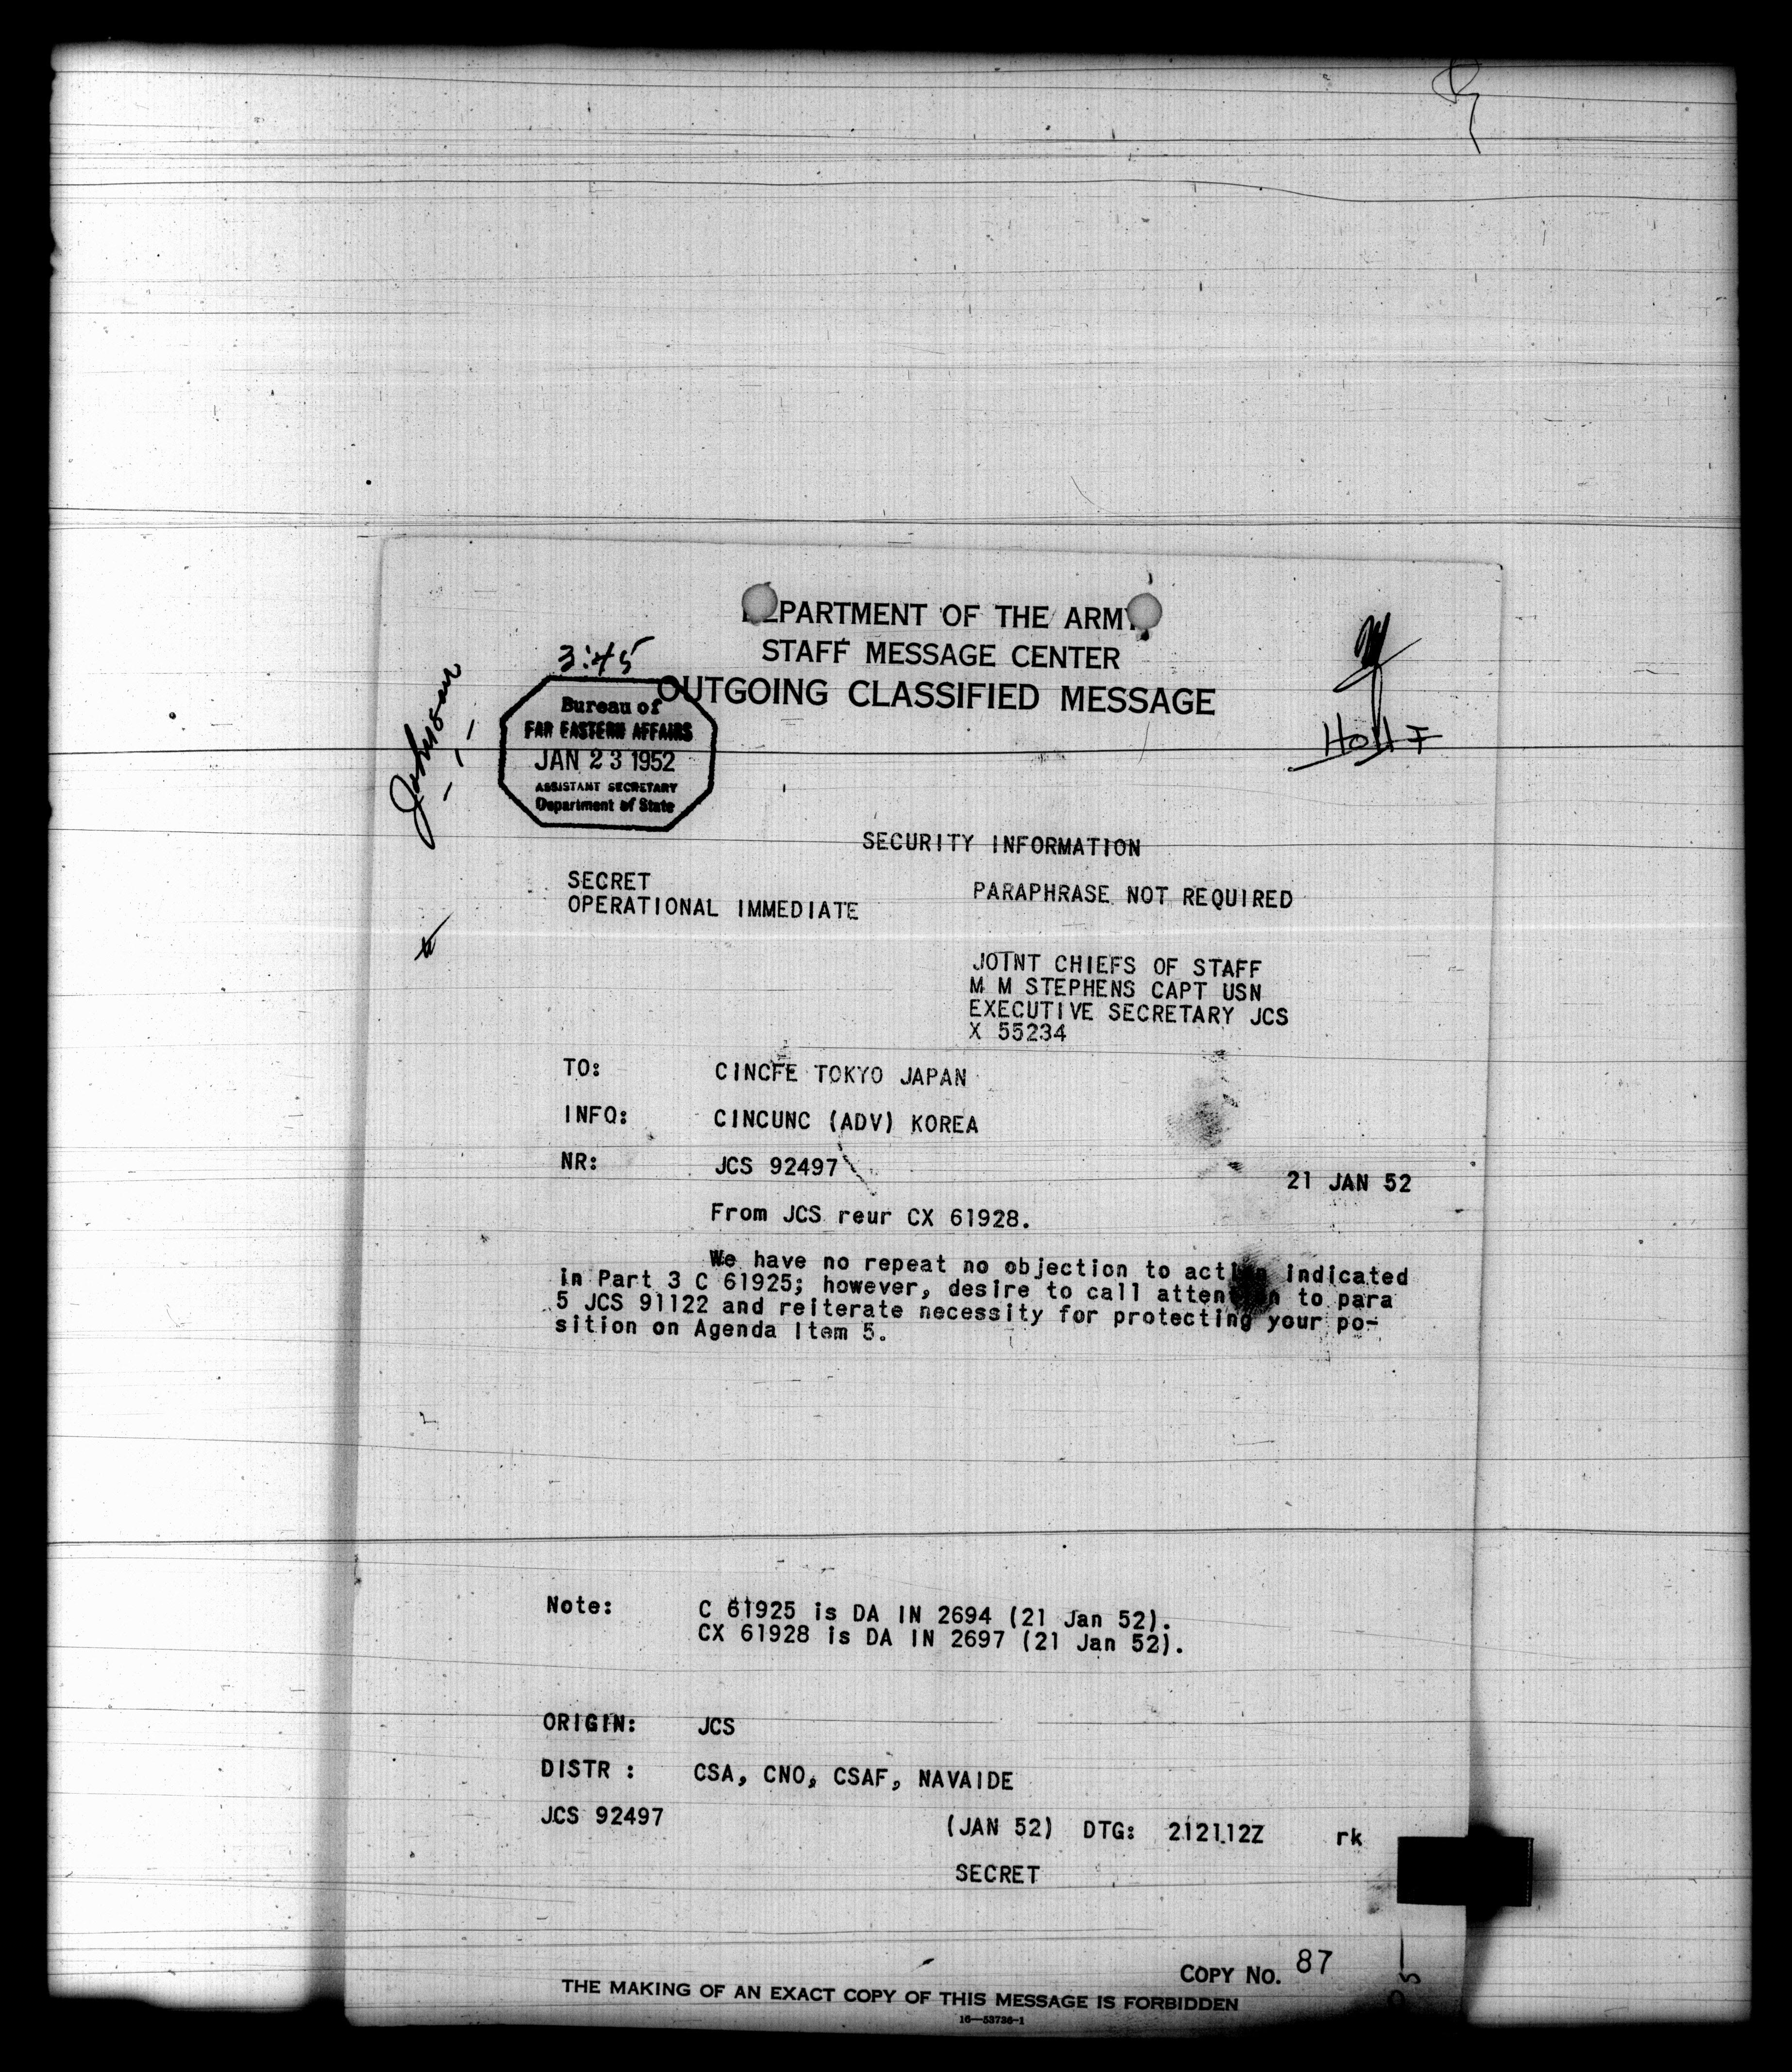 DEPARTMENT OF THE ARMY
STAFF MESSAGE CENTER
OUTGOING CLASSIFIED MESSAGE
3:45
Johnson
Bureau of
FAR EASTERN AFFAIRS
JAN 23 1952
ASSISTANT SECRETARY
Department of State
SECURITY INFORMATION
SECRET
OPERATIONAL IMMEDIATE
PARAPHRASE NOT REQUIRED
JOINT CHIEFS OF STAFF
M M STEPHENS CAPT USN
EXECUTIVE SECRETARY JCS
X 55234
TO: CINCFE TOKYO JAPAN
INFO: CINCUNC (ADV) KOREA
NR: JCS 92497
21 JAN 52
From JCS reur CX 61928.
We have no repeat no objection to action indicated
in Part 3 C 61925; however, desire to call attention to para
5 JCS 91122 and reiterate necessity for protecting your po-
sition on Agenda Item 5.
Note: C 61925 is DA IN 2694 (21 Jan 52).
CX 61928 is DA IN 2697 (21 Jan 52).
ORIGIN: JCS
DISTR : CSA, CNO, CSAF, NAVAIDE
JCS 92497 (JAN 52) DTG: 212112Z rk
SECRET
COPY NO. 87
THE MAKING OF AN EXACT COPY OF THIS MESSAGE IS FORBIDDEN
16—53736-1